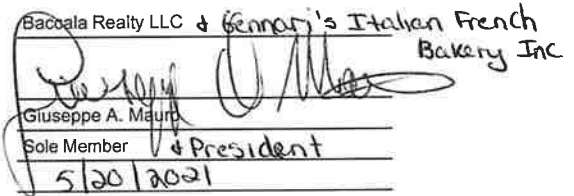 Baccala Realty LLC & Gennari's Italian French
Bakery Inc
Giuseppe A. Mauro
Sole Member & President
5/20/2021